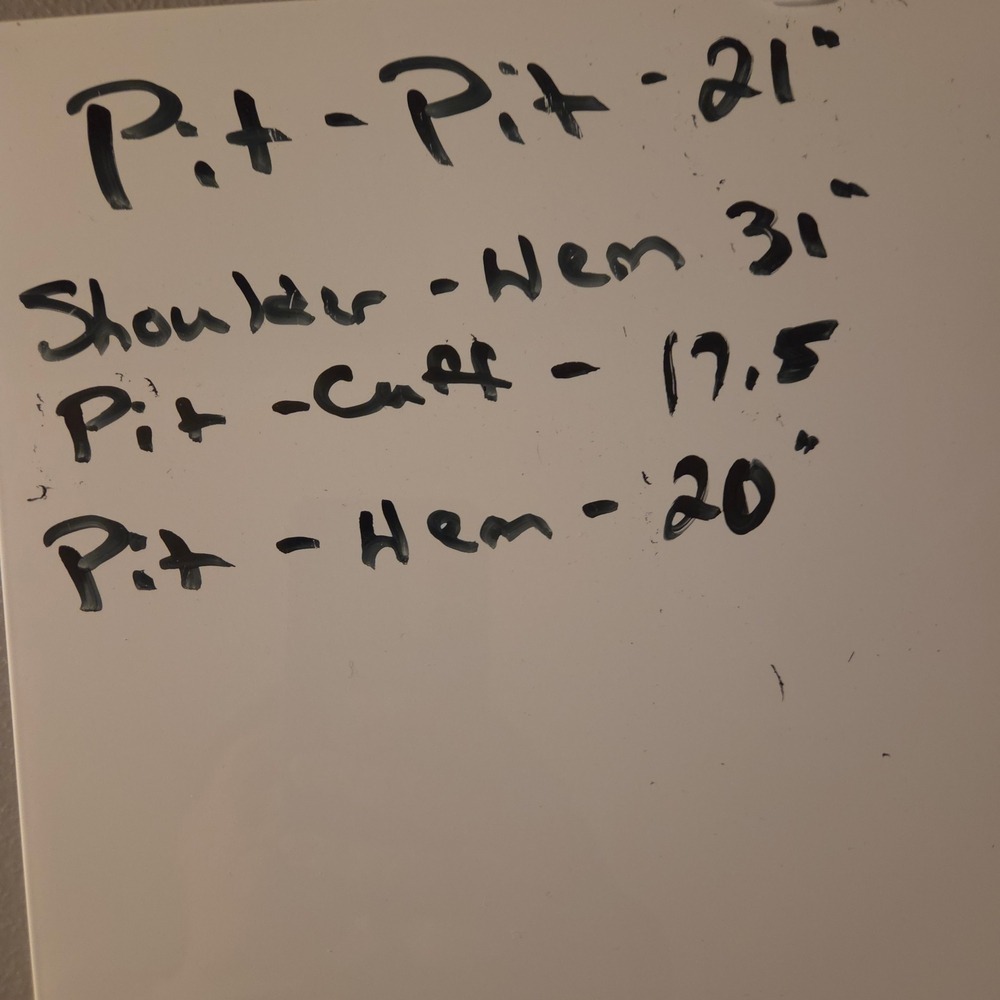 Pit - Pit - 21"
Shoulder - Hem 31"
Pit - Cuff - 17.5
Pit - Hem - 20"